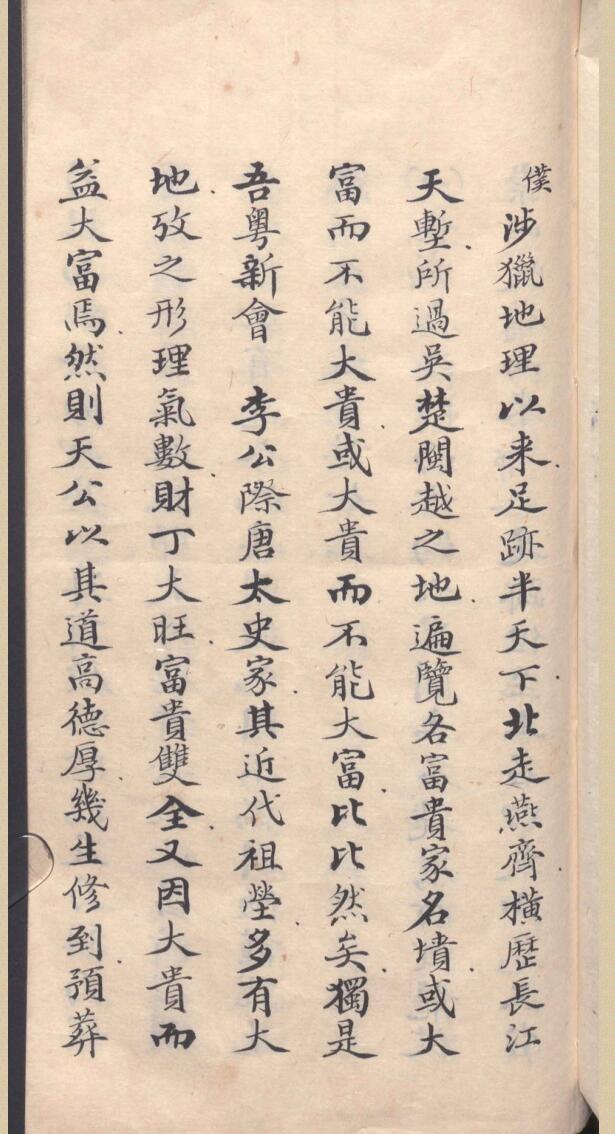 僕涉獵地理以来足跡半天下北走燕齊橫歷長江
天塹所過吳楚閩越之地遍覽各富貴家名墳或大
富而不能大貴或大貴而不能大富比比然矣獨是
吾粵新會 李公際唐太史家其近代祖塋多有大
地攷之形理氣數財丁大旺富貴雙全又因大貴而
益大富焉然則天公以其道高德厚幾生修到預葬